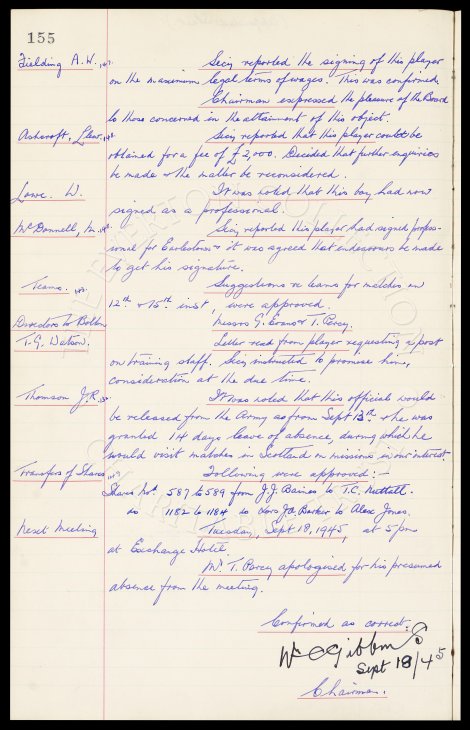 155
Fielding A. W. Secy reported the signing of this player
on the maximum legal terms of wages. This was confirmed.
Chairman expressed the pleasure of the Board
to those concerned in the attainment of this object.
Ashcroft, Llew. Secy reported that this player could be
obtained for a fee of £2,000. Decided that further enquiries
be made & the matter be reconsidered.
Lowe. W. It was noted that this boy had now
signed as a professional.
McDonnell, M. Secy reported this player had signed profes-
sional for Earlestown & it was agreed that endeavours be made
to get his signature.
Teams. Suggestions re teams for matches on
12th & 15th inst were approved.
Directors to Bolton Messrs G. Evans & T. Percy.
T. G. Watson. Letter read from player requesting a post
on training staff. Secy instructed to promise him,
consideration at the due time.
Thomson J. R. It was noted that this official would
be released from the Army as from Sept 13th & he was
granted 14 days leave of absence, during which he
would visit matches in Scotland on missions in our interest
Transfers of Shares Following were approved:-
Shares Nos 587 to 589 from J. J. Baines to T. C. Nuttall.
do 1182 to 1184 do Barker to Alex Jones.
Next Meeting Tuesday, Sept 18, 1945 at 5pm
at Exchange Hotel.
Mr T. Percy apologised for his presumed
absence from the meeting.
Confirmed as correct:
Wm C Gibbins
Sept 18/45
Chairman.